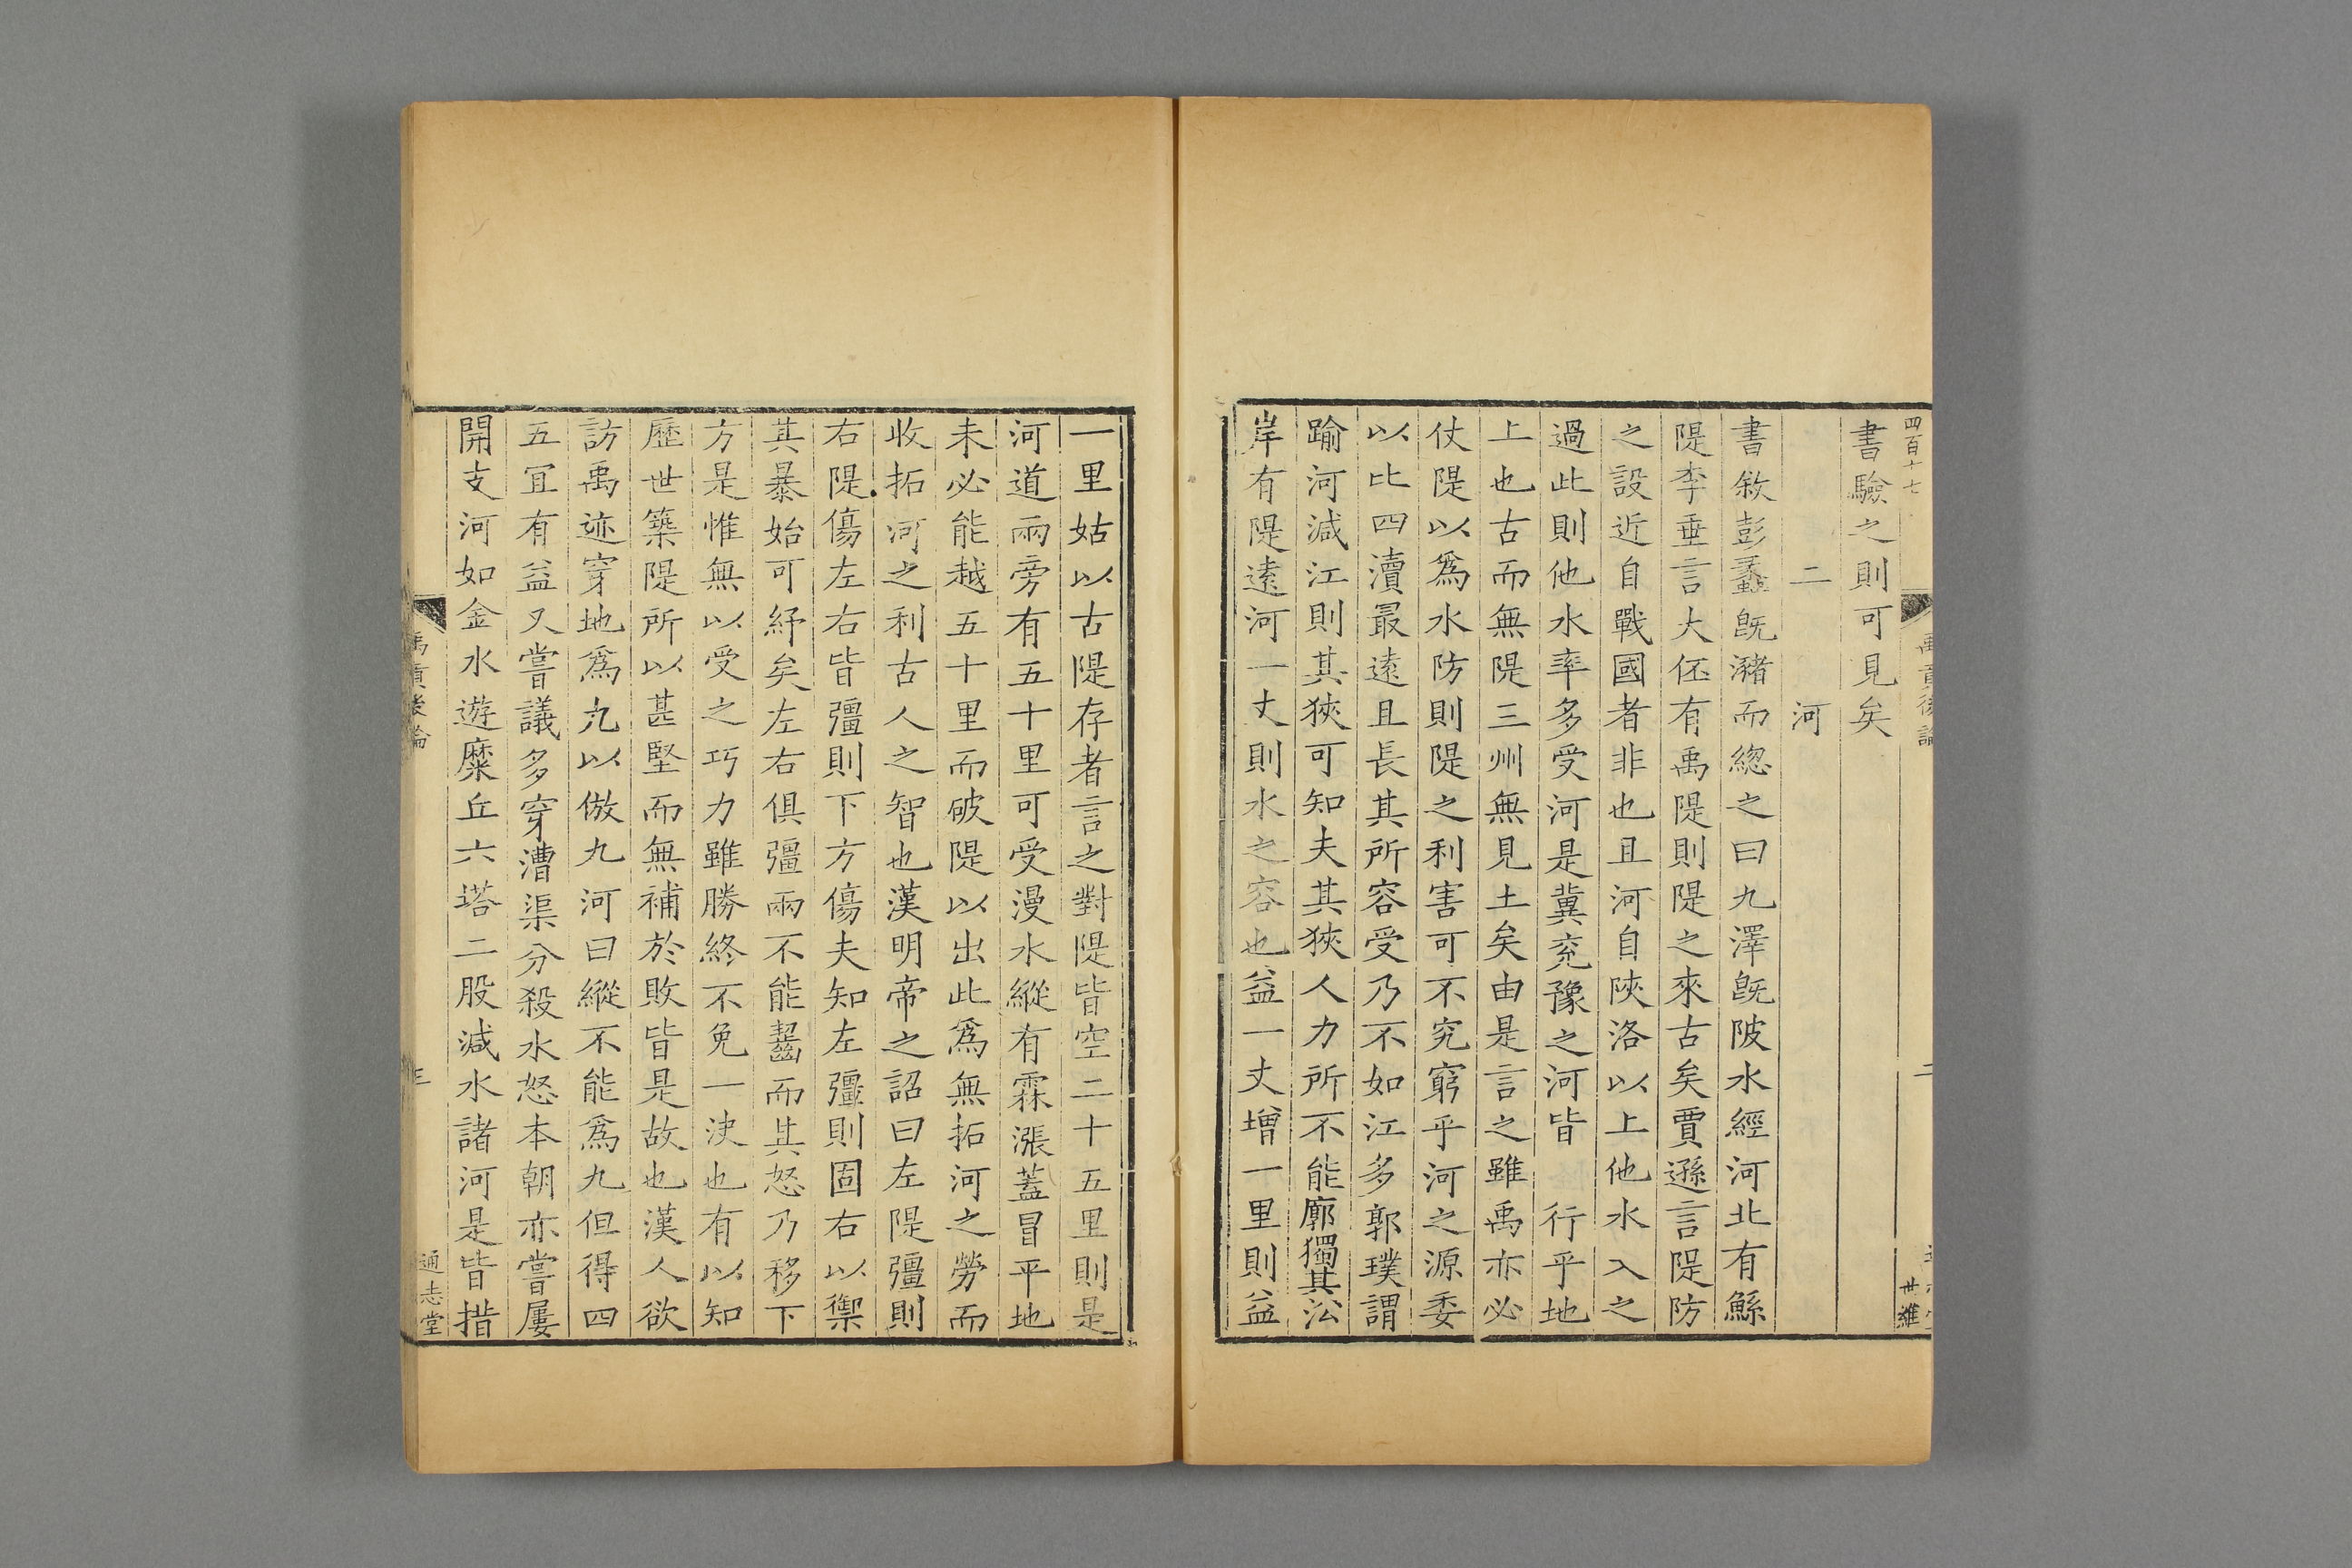 四百十七
禹貢後論
二
世雄
書驗之則可見矣
二 河
書敘彭蠡旣瀦而緫之曰九澤旣陂水經河北有鯀
隄李垂言大伾有禹隄則隄之來古矣賈遜言隄防
之設近自戰國者非也且河自陝洛以上他水入之
過此則他水率多受河是冀兖豫之河皆 行乎地
上也古而無隄三州無見土矣由是言之雖禹亦必
仗隄以爲水防則隄之利害可不究窮乎河之源委
以比四瀆最遠且長其所容受乃不如江多郭璞謂
踰河減江則其狹可知夫其狹人力所不能廓獨其㳂
岸有隄遠河一丈則水之容也益一丈增一里則益
一里姑以古隄存者言之對隄皆空二十五里則是
河道兩旁有五十里可受漫水縱有霖漲蓋冒平地
未必能越五十里而破隄以出此爲無拓河之勞而
收拓河之利古人之智也漢明帝之詔曰左隄彊則
右隄傷左右皆彊則下方傷夫知左彊則固右以禦
其暴始可紓矣左右俱彊兩不能齧而其怒乃移下
方是惟無以受之巧力雖勝終不免一決也有以知
歷世築隄所以甚堅而無補於敗皆是故也漢人欲
訪禹迹穿地爲九以倣九河曰縱不能爲九但得四
五宜有益又嘗議多穿漕渠分殺水怒本朝亦嘗屢
開支河如金水遊麋丘六塔二股減水諸河是皆措
禹貢後論
三
通志堂